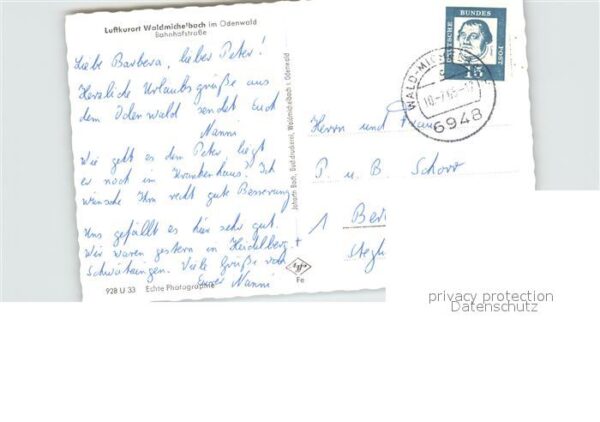 Luftkurort Waldmichelbach im Odenwald
Bahnhofstraße
Liebe Barbera, lieber Peter!
Herzliche Urlaubsgrüße aus
dem Odenwald sendet Euch
Nanni
Wie geht es den Peter, liegt
er noch im Krankenhaus? Ich
wünsche Ihm recht gute Besserung.
Uns gefällt es hier sehr gut.
Wir waren gestern in Heidelberg +
Schwetzingen. Viele Grüße von
Eurer Nanni
928 U 33 Echte Photographie
Johann Bach, Buchdruckerei, Waldmichelbach i. Odenwald
Agfa
Fe
DEUTSCHE
BUNDES
POST
15
WALD-MICH
6948
Herrn und Frau
P. u. B. Schorr
1 Ber
Stegl
privacy protection
Datenschutz